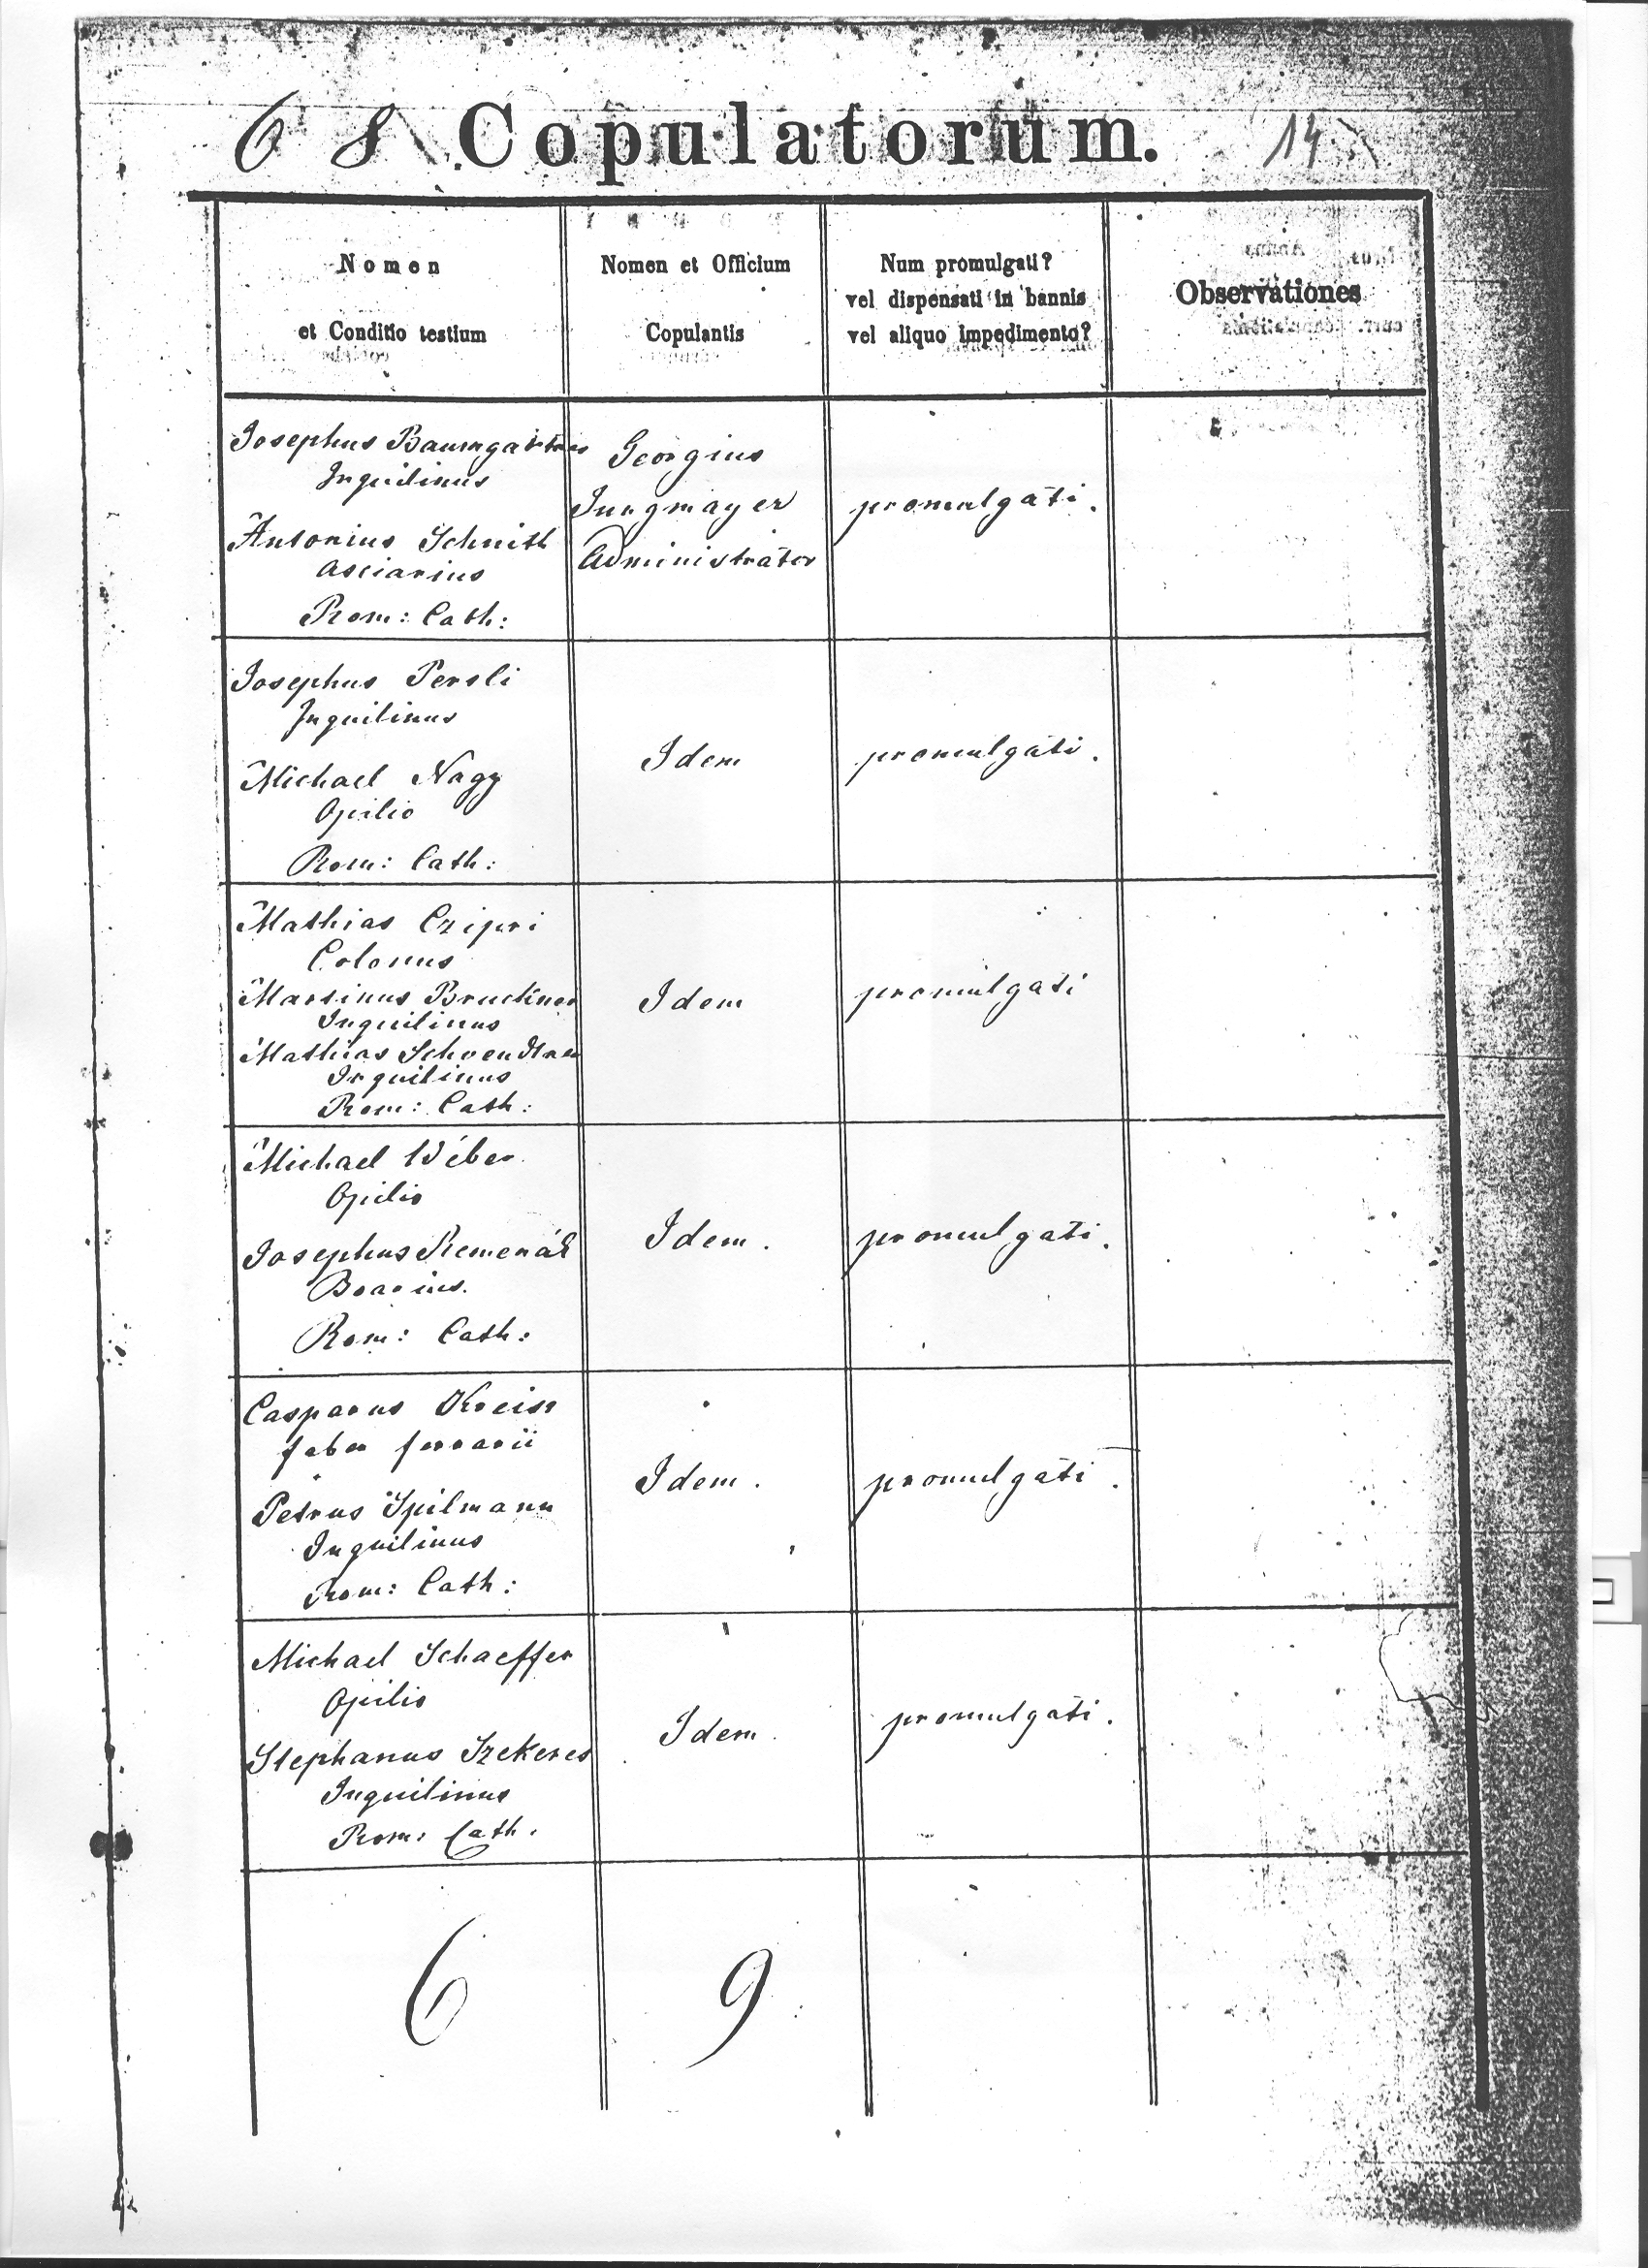 6 8 Copulatorum. 14
Nomen
et Conditio testium
Nomen et Officium
Copulantis
Num promulgati?
vel dispensati in bannis
vel aliquo impedimento?
Observationes
Josephus Baumgartner
Inquilinus
Antonius Schnith
asciarius
Rom: Cath:
Georgius
Jungmayer
Administrator
promulgati.
Josephus Persli
Inquilinus
Michael Nagy
Opilio
Rom: Cath:
Idem
promulgati.
Mathias Czipri
Colonus
Martinus Bruckner
Inquilinus
Mathias
Inquilinus
Rom: Cath:
Idem
promulgati
Michael Wéber
Opilio
Josephus Remenár
Boarius.
Rom: Cath:
Idem.
promulgati.
Casparus
faber ferrarii
Petrus Spilmann
Inquilinus
Rom: Cath:
Idem.
promulgati.
Michael Schaeffer
Opilio
Stephanus Szekeres
Inquilinus
Rom: Cath.
Idem.
promulgati.
6 9